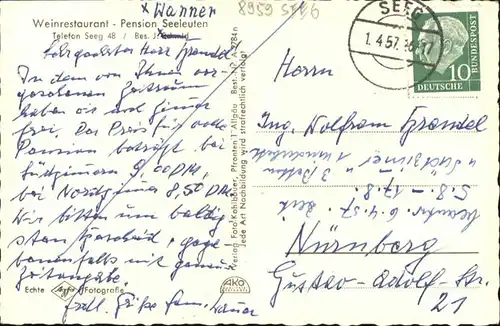 x Wanner
8959 St1/6
Weinrestaurant - Pension Seeleuten
Telefon Seeg 48 / Bes. J. Schmid
Sehr geehrter Herr Hrandel
In dem von Ihnen vor-
gesehenen Zeitraum
haben wir noch Zimmer
frei. Der Preis für volle
Pension beträgt bei
Südzimmern 9,00 DM,
bei Nordzimmer 8,50 DM.
Wir bitten um baldig
sten Bescheid, gege
benenfalls mit genauer
Zeitangabe.
Echte Agfa Fotografie
Frdl. Grüße Fam.
Verlag Foto Kohlbauer, Pfronten 1. Allgäu Best.-Nr.
Jede Art Nachbildung wird strafrechtlich verfolgt
AKO
SEEG
1. 4. 57
10
DEUTSCHE
BUNDESPOST
Herrn
Ing. Wolfram
3 Betten
5.8. - 17.8.
6.4.57
Nürnberg
Gustav-Adolf-Str.
21